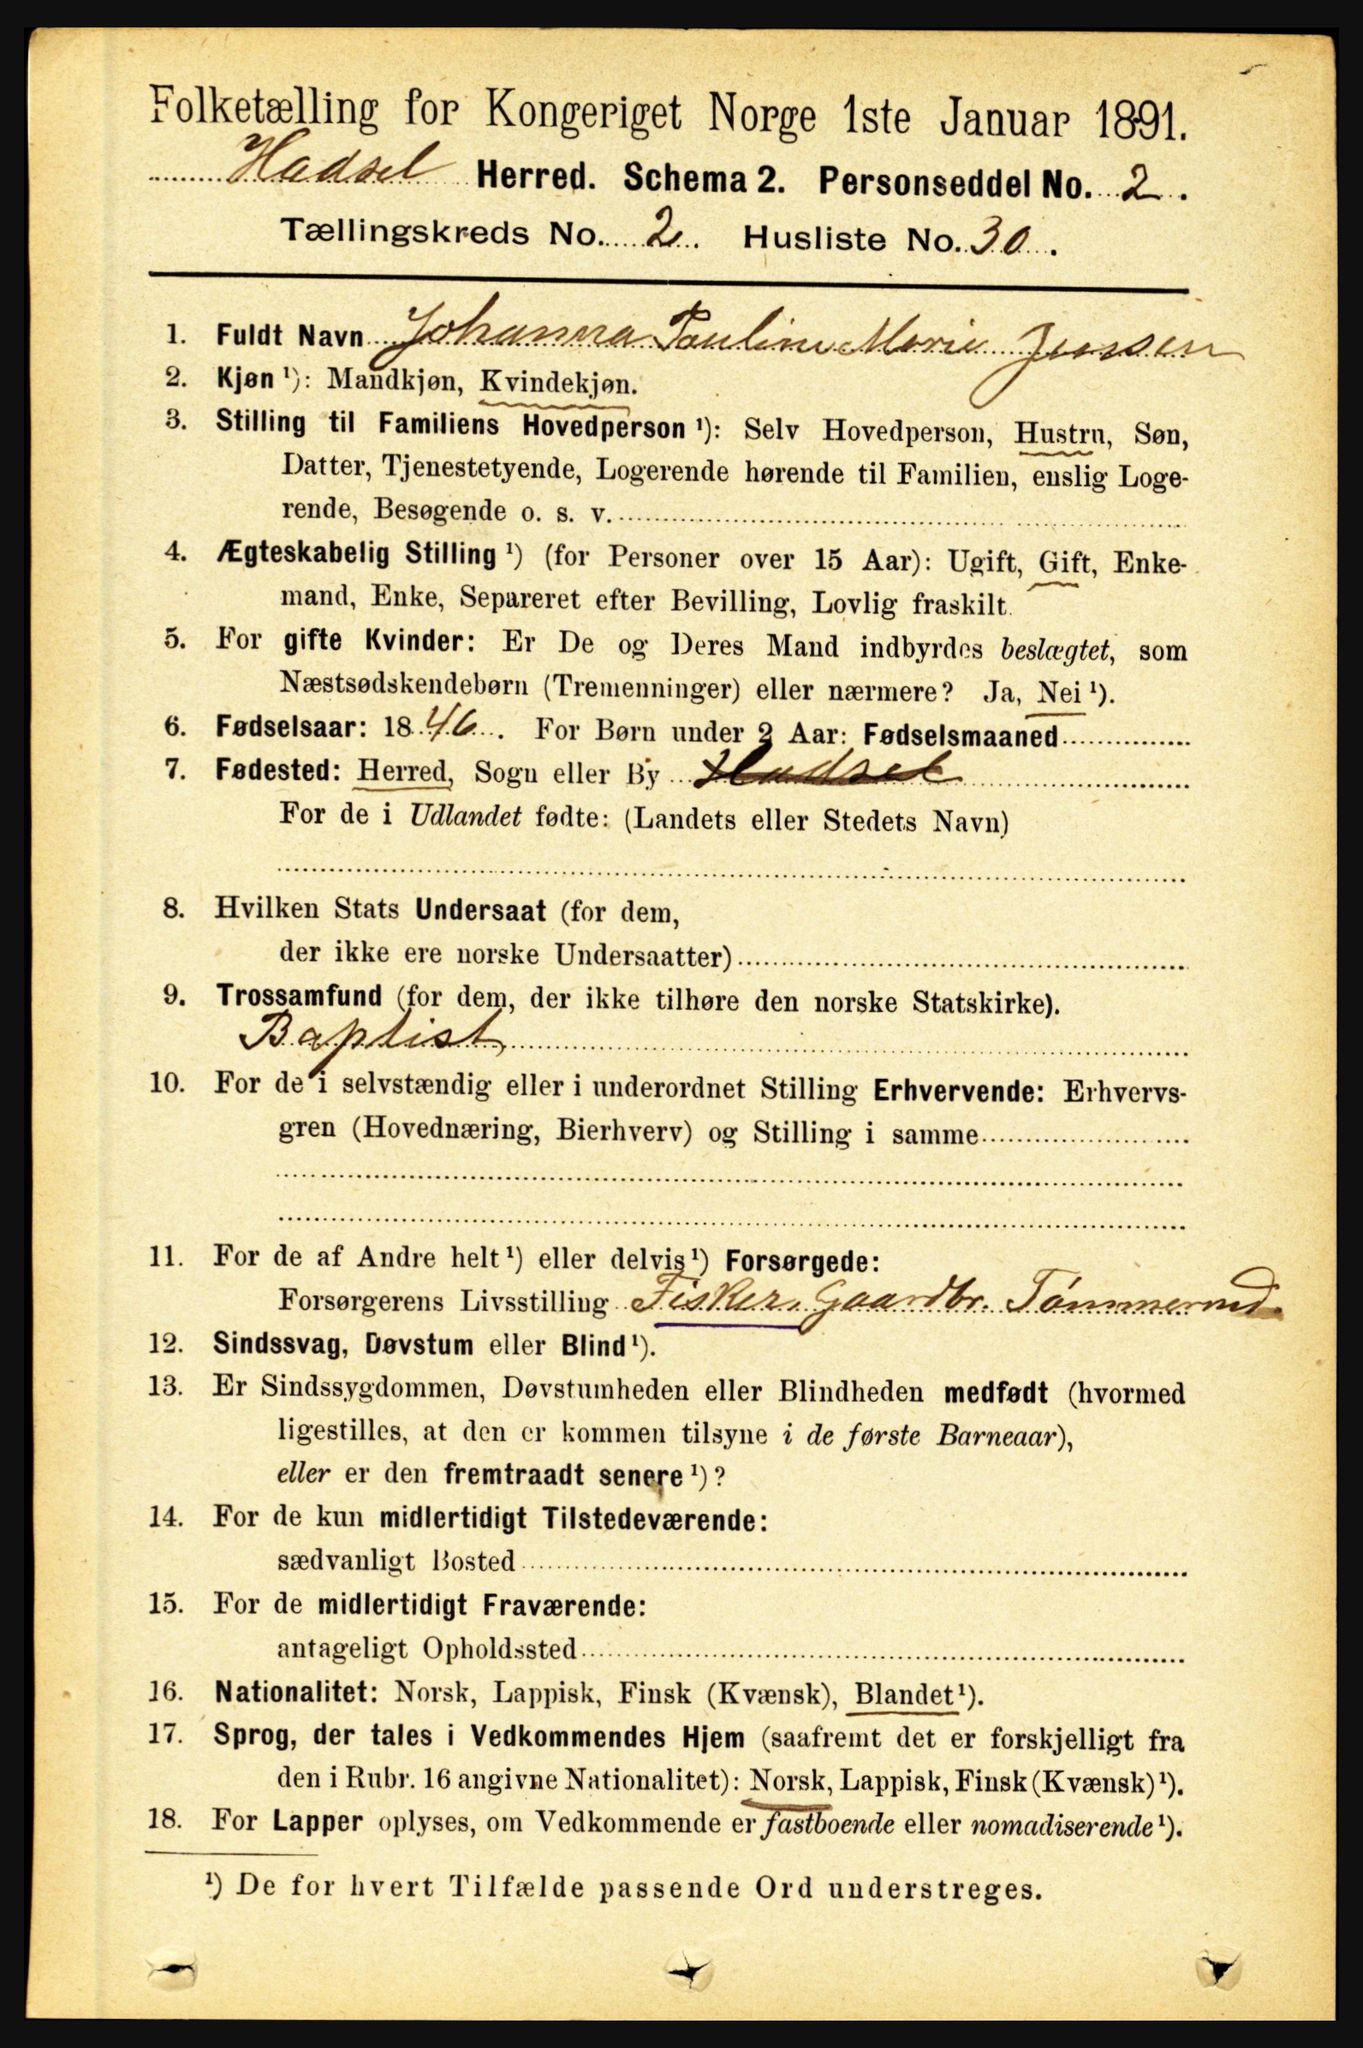 Folketælling for Kongeriget Norge 1ste Januar 1891.
Hadsel Herred. Schema 2. Personseddel No. 2.
Tællingskreds No. 2. Husliste No. 30.
1. Fuldt Navn Johanna Pauline Marie Jensen
2. Kjøn ¹): Mandkjøn, Kvindekjøn.
3. Stilling til Familiens Hovedperson ¹): Selv Hovedperson, Hustru, Søn,
Datter, Tjenestetyende, Logerende hørende til Familien, enslig Loge-
rende, Besøgende o. s. v.
4. Ægteskabelig Stilling ¹) (for Personer over 15 Aar): Ugift, Gift, Enke-
mand, Enke, Separeret efter Bevilling, Lovlig fraskilt.
5. For gifte Kvinder: Er De og Deres Mand indbyrdes beslægtet, som
Næstsødskendebørn (Tremenninger) eller nærmere? Ja, Nei ¹).
6. Fødselsaar: 1846. For Børn under 2 Aar: Fødselsmaaned
7. Fødested: Herred, Sogn eller By Hadsel
For de i Udlandet fødte: (Landets eller Stedets Navn)
8. Hvilken Stats Undersaat (for dem,
der ikke ere norske Undersaatter)
9. Trossamfund (for dem, der ikke tilhøre den norske Statskirke).
Baptist
10. For de i selvstændig eller i underordnet Stilling Erhvervende: Erhvervs-
gren (Hovednæring, Bierhverv) og Stilling i samme
11. For de af Andre helt ¹) eller delvis ¹) Forsørgede:
Forsørgerens Livsstilling Fisker, Gaardbr. Tømmermd.
12. Sindssvag, Døvstum eller Blind ¹).
13. Er Sindssygdommen, Døvstumheden eller Blindheden medfødt (hvormed
ligestilles, at den er kommen tilsyne i de første Barneaar),
eller er den fremtraadt senere ¹)?
14. For de kun midlertidigt Tilstedeværende:
sædvanligt Bosted
15. For de midlertidigt Fraværende:
antageligt Opholdssted
16. Nationalitet: Norsk, Lappisk, Finsk (Kvænsk), Blandet ¹).
17. Sprog, der tales i Vedkommendes Hjem (saafremt det er forskjelligt fra
den i Rubr. 16 angivne Nationalitet): Norsk, Lappisk, Finsk (Kvænsk) ¹).
18. For Lapper oplyses, om Vedkommende er fastboende eller nomadiserende ¹).
¹) De for hvert Tilfælde passende Ord understreges.